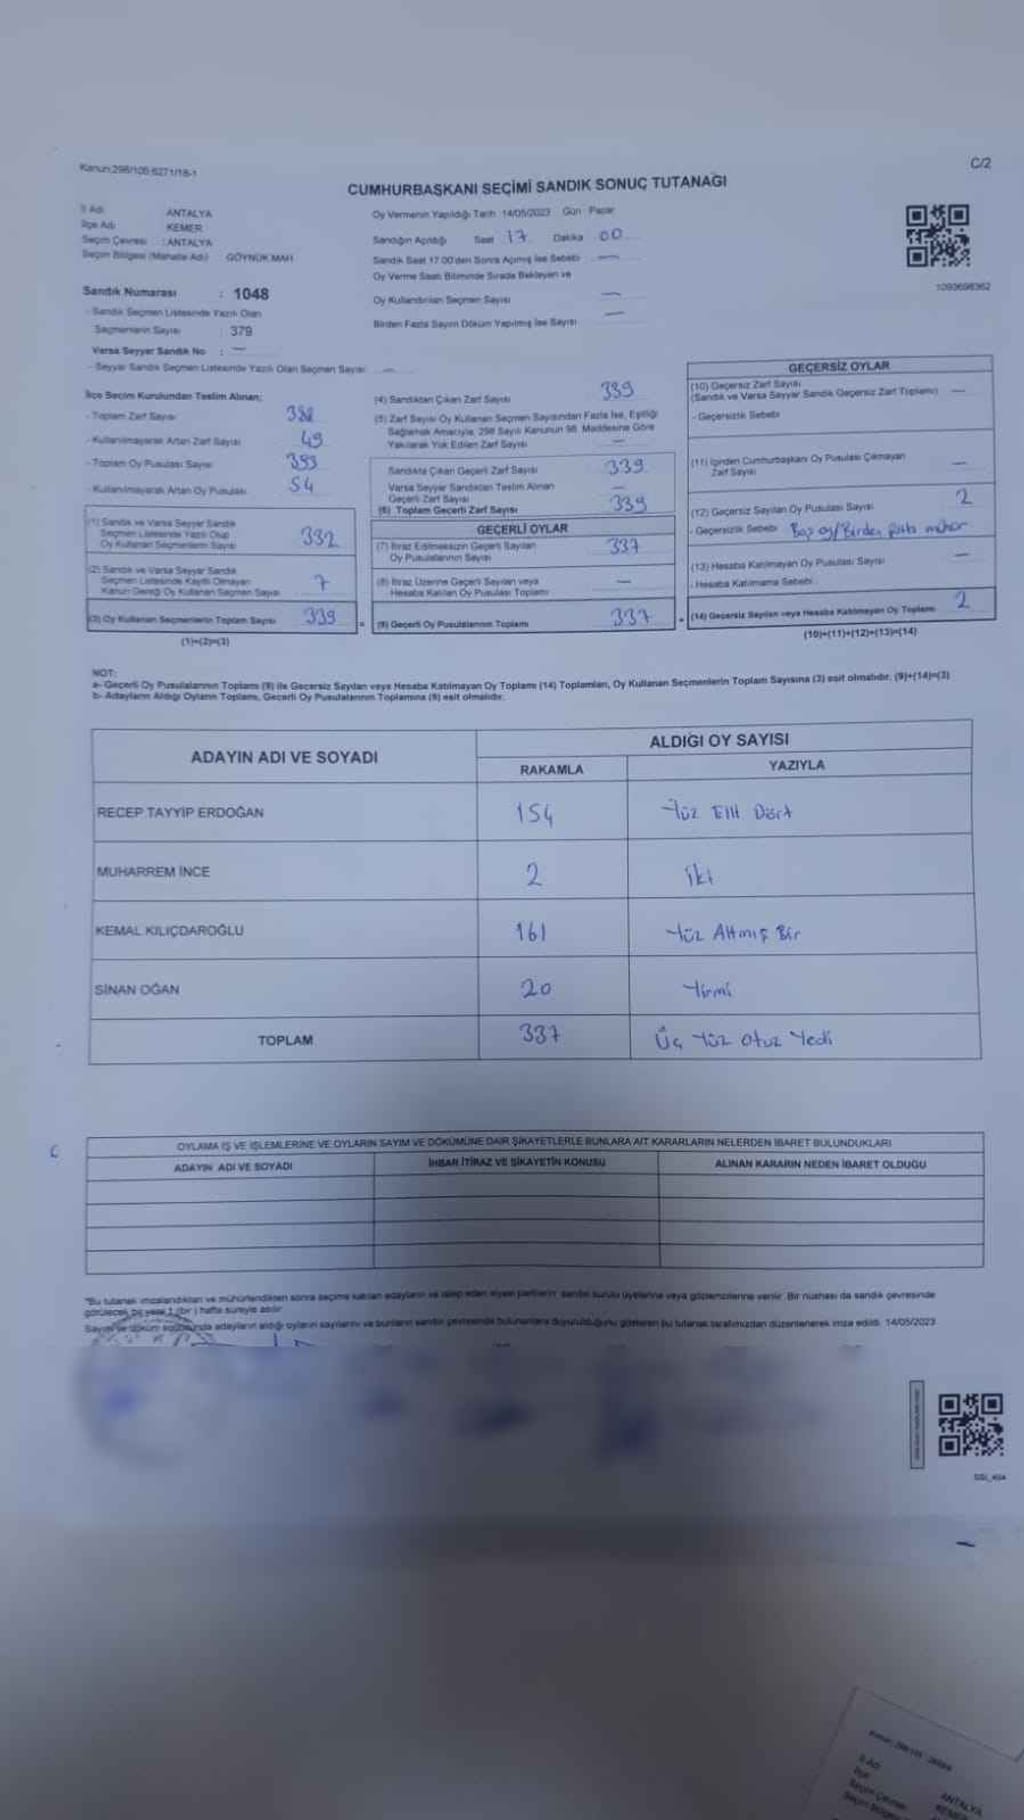 Kanun:298/105;6271/18-1
C/2
CUMHURBAŞKANI SEÇİMİ SANDIK SONUÇ TUTANAĞI
İl Adı : ANTALYA
İlçe Adı : KEMER
Seçim Çevresi : ANTALYA
Seçim Bölgesi (Mahalle Adı) : GÖYNÜK MAH
Sandık Numarası : 1048
- Sandık Seçmen Listesinde Yazılı Olan
Seçmenlerin Sayısı : 379
Varsa Seyyar Sandık No : —
- Seyyar Sandık Seçmen Listesinde Yazılı Olan Seçmen Sayısı —
Oy Vermenin Yapıldığı Tarih 14/05/2023 Gün Pazar
Sandığın Açıldığı Saat 17 Dakika 00
Sandık Saat 17.00'den Sonra Açılmış İse Sebebi —
Oy Verme Saati Bitiminde Sırada Bekleyen ve
Oy Kullandırılan Seçmen Sayısı —
Birden Fazla Sayım Döküm Yapılmış İse Sayısı —
1093698362
İlçe Seçim Kurulundan Teslim Alınan;
- Toplam Zarf Sayısı 388
- Kullanılmayarak Artan Zarf Sayısı 49
- Toplam Oy Pusulası Sayısı 393
- Kullanılmayarak Artan Oy Pusulası 54
(1) Sandık ve Varsa Seyyar Sandık
Seçmen Listesinde Yazılı Olup
Oy Kullanan Seçmenlerin Sayısı 332
(2) Sandık ve Varsa Seyyar Sandık
Seçmen Listesinde Kayıtlı Olmayan
Kanun Gereği Oy Kullanan Seçmen Sayısı 7
(3) Oy Kullanan Seçmenlerin Toplam Sayısı 339
(1)+(2)=(3)
(4) Sandıktan Çıkan Zarf Sayısı 339
(5) Zarf Sayısı Oy Kullanan Seçmen Sayısından Fazla İse, Eşitliği
Sağlamak Amacıyla, 298 Sayılı Kanunun 98. Maddesine Göre
Yakılarak Yok Edilen Zarf Sayısı —
Sandıkta Çıkan Geçerli Zarf Sayısı 339
Varsa Seyyar Sandıktan Teslim Alınan
Geçerli Zarf Sayısı —
(6) Toplam Geçerli Zarf Sayısı 339
GEÇERLİ OYLAR
(7) İtiraz Edilmeksizin Geçerli Sayılan
Oy Pusulalarının Sayısı 337
(8) İtiraz Üzerine Geçerli Sayılan veya
Hesaba Katılan Oy Pusulası Toplamı —
(9) Geçerli Oy Pusulalarının Toplamı 337
GEÇERSİZ OYLAR
(10) Geçersiz Zarf Sayısı
(Sandık ve Varsa Seyyar Sandık Geçersiz Zarf Toplamı) —
- Geçersizlik Sebebi
(11) İçinden Cumhurbaşkanı Oy Pusulası Çıkmayan
Zarf Sayısı —
(12) Geçersiz Sayılan Oy Pusulası Sayısı 2
- Geçersizlik Sebebi Boş oy/Birden mühür
(13) Hesaba Katılmayan Oy Pusulası Sayısı —
- Hesaba Katılmama Sebebi
(14) Geçersiz Sayılan veya Hesaba Katılmayan Oy Toplamı 2
(10)+(11)+(12)+(13)=(14)
NOT:
a- Geçerli Oy Pusulalarının Toplamı (9) ile Geçersiz Sayılan veya Hesaba Katılmayan Oy Toplamı (14) Toplamları, Oy Kullanan Seçmenlerin Toplam Sayısına (3) eşit olmalıdır. (9)+(14)=(3)
b- Adayların Aldığı Oyların Toplamı, Geçerli Oy Pusulalarının Toplamına (9) eşit olmalıdır.
ADAYIN ADI VE SOYADI
ALDIĞI OY SAYISI
RAKAMLA YAZIYLA
RECEP TAYYİP ERDOĞAN 154 Yüz Elli Dört
MUHARREM İNCE 2 iki
KEMAL KILIÇDAROĞLU 161 Yüz Altmış Bir
SİNAN OĞAN 20 Yirmi
TOPLAM 337 Üç Yüz Otuz Yedi
OYLAMA İŞ VE İŞLEMLERİNE VE OYLARIN SAYIM VE DÖKÜMÜNE DAİR ŞİKAYETLERLE BUNLARA AİT KARARLARIN NELERDEN İBARET BULUNDUKLARI
ADAYIN ADI VE SOYADI İHBAR İTİRAZ VE ŞİKAYETİN KONUSU ALINAN KARARIN NEDEN İBARET OLDUĞU
"Bu tutanak imzalandıktan ve mühürlendikten sonra seçime katılan adayların ve talep eden siyasi partilerin sandık kurulu üyelerine veya gözlemcilerine verilir. Bir nüshası da sandık çevresinde
görülecek bir yere 1 (bir) hafta süreyle asılır
Sayım ve döküm sonucunda adayların aldığı oyların sayılarını ve bunların sandık çevresinde bulunanlara duyurulduğunu gösteren bu tutanak tarafımızdan düzenlenerek imza edildi. 14/05/2023
İl Adı
ANTALYA